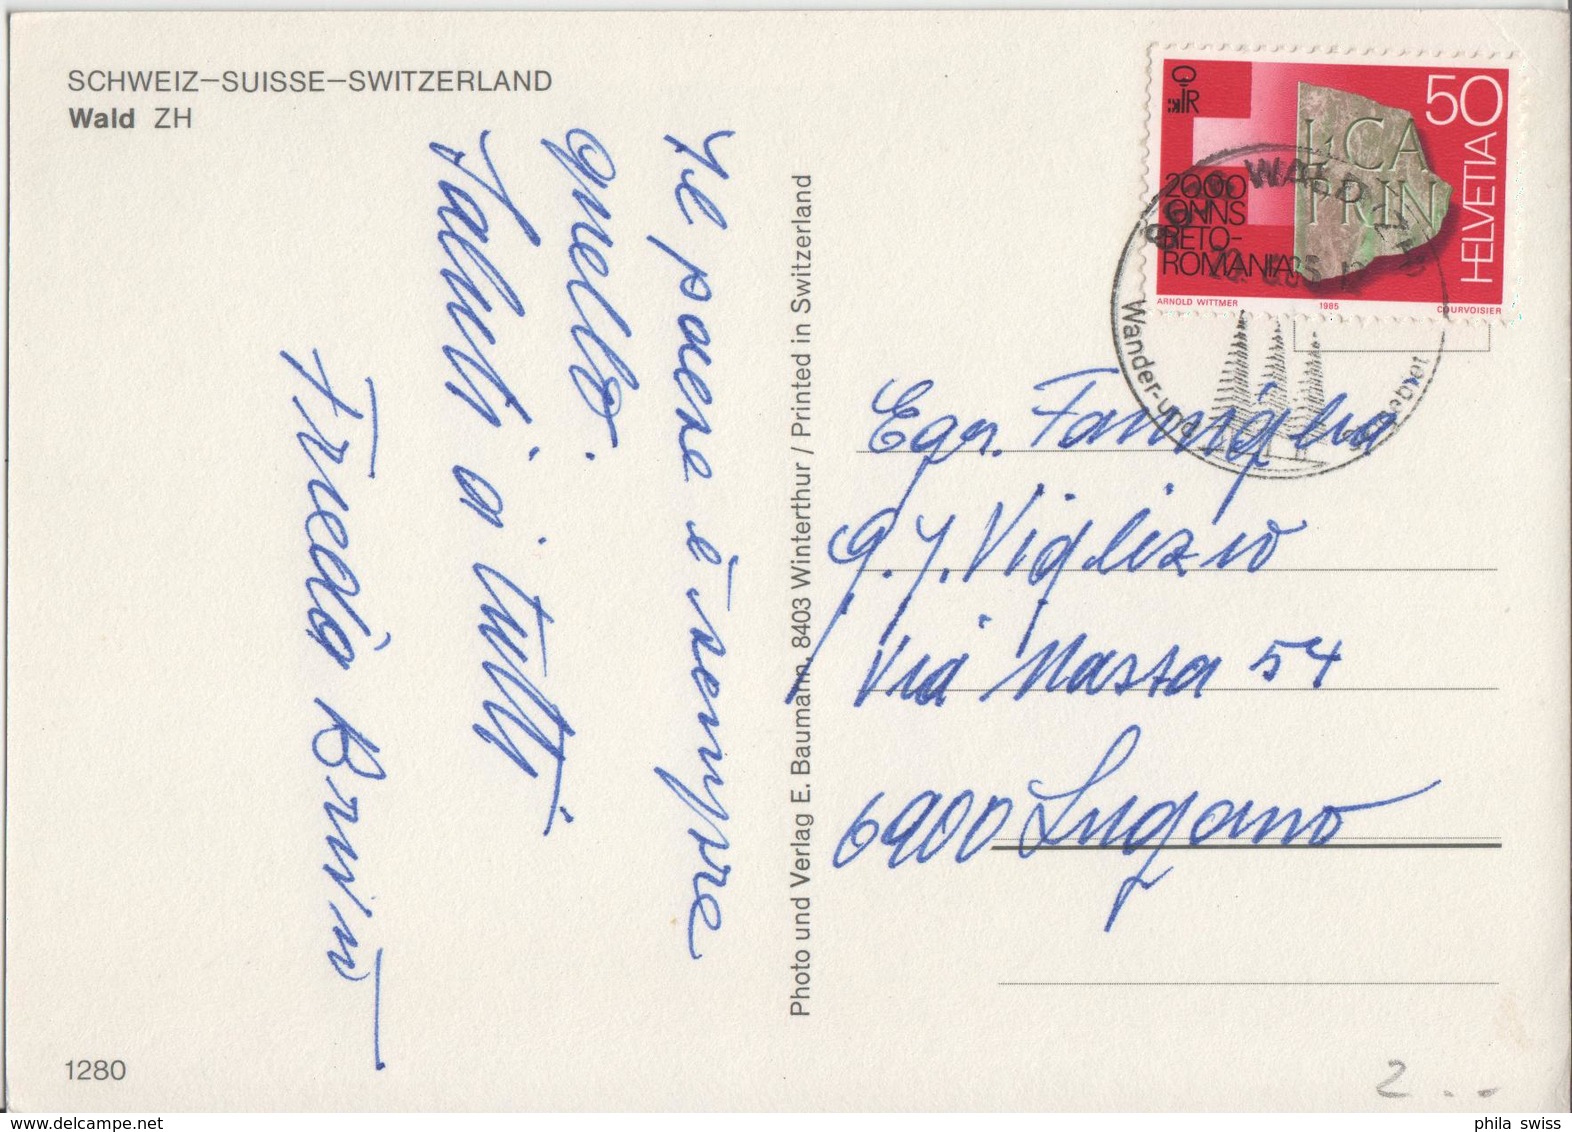 SCHWEIZ–SUISSE–SWITZERLAND
Wald ZH
Il paese è sempre
quello.
Saluti a tutti
Frieda Brunn
1280
Photo und Verlag E. Baumann, 8403 Winterthur / Printed in Switzerland
50
HELVETIA
2000
ONNS
RETO-
ROMANIA
L CA
PRIN
ARNOLD WITTMER
1985
COURVOISIER
WALD
Wander-und
gebiet
Egr. Famiglia
G. J. Viglizio
Via Massa 54
6900 Lugano
2.--
phila swiss